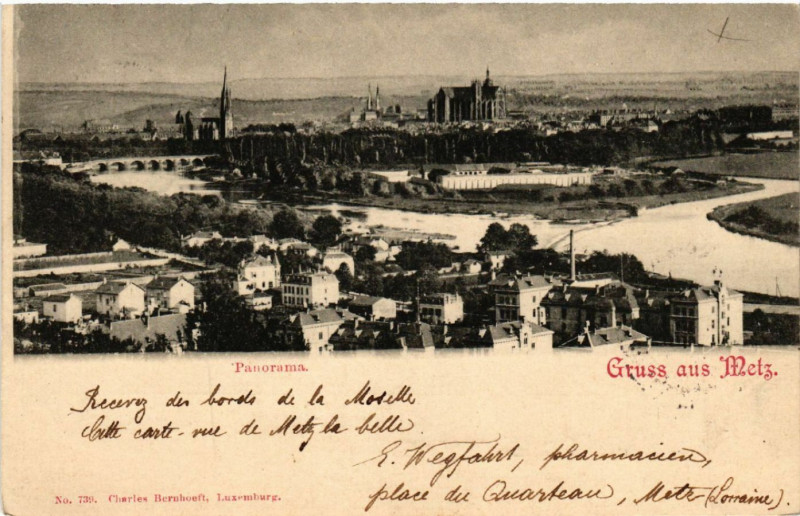 Panorama.
Gruss aus Metz.
Recevez des bords de la Moselle
Cette carte-vue de Metz la belle.
E. Wegfahrt, pharmacien,
place du Quarteau, Metz (Lorraine).
No. 739. Charles Bernhoeft, Luxemburg.